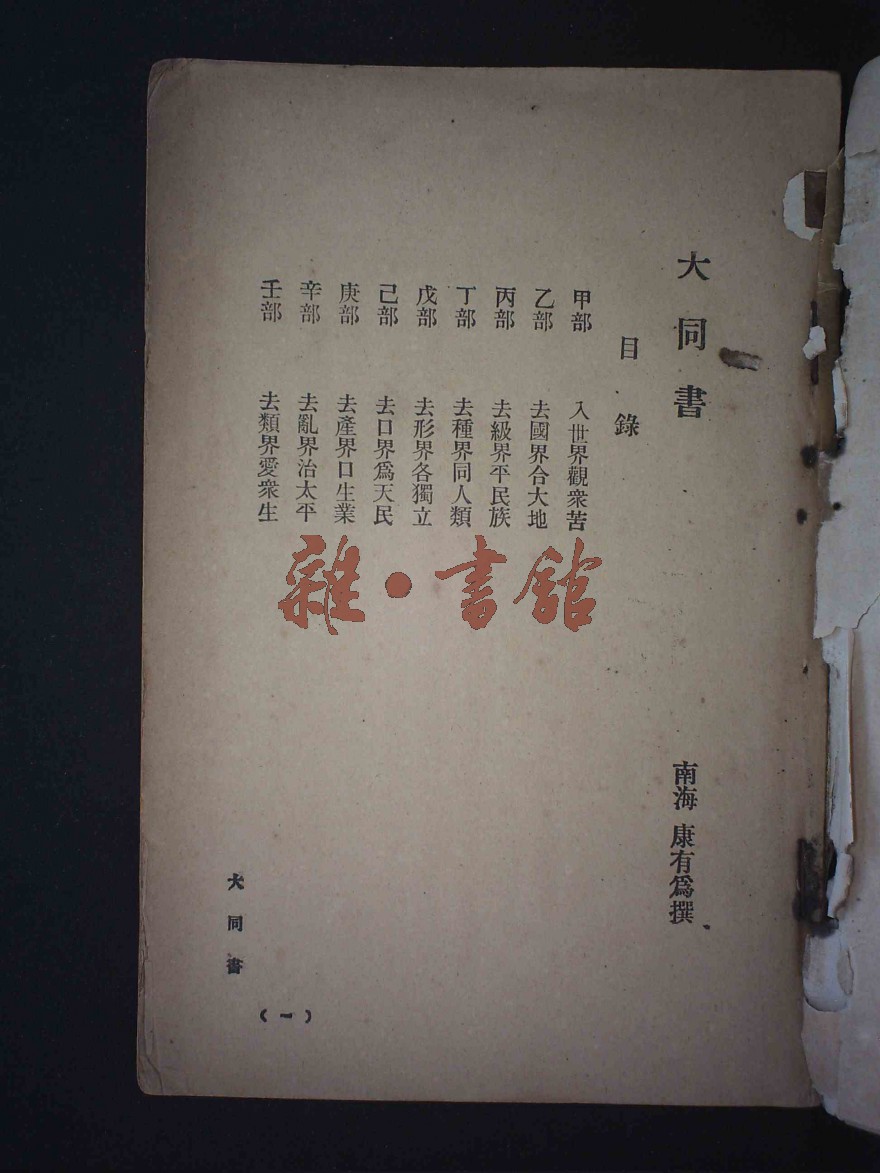 大同書
南海 康有爲撰
目錄
甲部 入世界觀衆苦
乙部 去國界合大地
丙部 去級界平民族
丁部 去種界同人類
戊部 去形界各獨立
己部 去口界爲天民
庚部 去產界口生業
辛部 去亂界治太平
壬部 去類界愛衆生
大同書
(一)
雜·書館